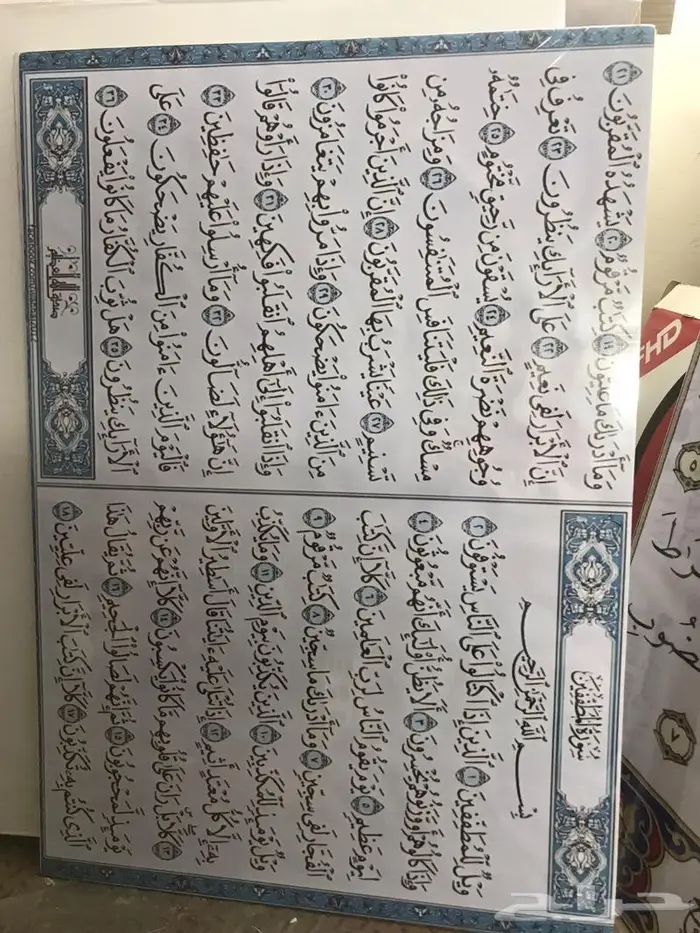 سُورَةُ الْمُطَفِّفِينَ
بِسْمِ اللَّهِ الرَّحْمَٰنِ الرَّحِيمِ
وَيْلٌ لِّلْمُطَفِّفِينَ ١ ٱلَّذِينَ إِذَا ٱكْتَالُوا۟ عَلَى ٱلنَّاسِ يَسْتَوْفُونَ ٢
وَإِذَا كَالُوهُمْ أَو وَّزَنُوهُمْ يُخْسِرُونَ ٣ أَلَا يَظُنُّ أُو۟لَٰٓئِكَ أَنَّهُم مَّبْعُوثُونَ ٤
لِيَوْمٍ عَظِيمٍ ٥ يَوْمَ يَقُومُ ٱلنَّاسُ لِرَبِّ ٱلْعَٰلَمِينَ ٦ كَلَّآ إِنَّ كِتَٰبَ
ٱلْفُجَّارِ لَفِى سِجِّينٍ ٧ وَمَآ أَدْرَىٰكَ مَا سِجِّينٌ ٨ كِتَٰبٌ مَّرْقُومٌ ٩
وَيْلٌ يَوْمَئِذٍ لِّلْمُكَذِّبِينَ ١٠ ٱلَّذِينَ يُكَذِّبُونَ بِيَوْمِ ٱلدِّينِ ١١ وَمَا يُكَذِّبُ
بِهِۦٓ إِلَّا كُلُّ مُعْتَدٍ أَثِيمٍ ١٢ إِذَا تُتْلَىٰ عَلَيْهِ ءَايَٰتُنَا قَالَ أَسَٰطِيرُ ٱلْأَوَّلِينَ
١٣ كَلَّا بَلْ رَانَ عَلَىٰ قُلُوبِهِم مَّا كَانُوا۟ يَكْسِبُونَ ١٤ كَلَّآ إِنَّهُمْ عَن رَّبِّهِمْ
يَوْمَئِذٍ لَّمَحْجُوبُونَ ١٥ ثُمَّ إِنَّهُمْ لَصَالُوا۟ ٱلْجَحِيمِ ١٦ ثُمَّ يُقَالُ هَٰذَا
ٱلَّذِى كُنتُم بِهِۦ تُكَذِّبُونَ ١٧ كَلَّآ إِنَّ كِتَٰبَ ٱلْأَبْرَارِ لَفِى عِلِّيِّينَ ١٨
وَمَآ أَدْرَىٰكَ مَا عِلِّيُّونَ ١٩ كِتَٰبٌ مَّرْقُومٌ ٢٠ يَشْهَدُهُ ٱلْمُقَرَّبُونَ ٢١
إِنَّ ٱلْأَبْرَارَ لَفِى نَعِيمٍ ٢٢ عَلَى ٱلْأَرَآئِكِ يَنظُرُونَ ٢٣ تَعْرِفُ فِى
وُجُوهِهِمْ نَضْرَةَ ٱلنَّعِيمِ ٢٤ يُسْقَوْنَ مِن رَّحِيقٍ مَّخْتُومٍ ٢٥ خِتَٰمُهُۥ
مِسْكٌ وَفِى ذَٰلِكَ فَلْيَتَنَافَسِ ٱلْمُتَنَٰفِسُونَ ٢٦ وَمِزَاجُهُۥ مِن
تَسْنِيمٍ ٢٧ عَيْنًا يَشْرَبُ بِهَا ٱلْمُقَرَّبُونَ ٢٨ إِنَّ ٱلَّذِينَ أَجْرَمُوا۟ كَانُوا۟
مِنَ ٱلَّذِينَ ءَامَنُوا۟ يَضْحَكُونَ ٢٩ وَإِذَا مَرُّوا۟ بِهِمْ يَتَغَامَزُونَ ٣٠
وَإِذَا ٱنقَلَبُوٓا۟ إِلَىٰٓ أَهْلِهِمُ ٱنقَلَبُوا۟ فَكِهِينَ ٣١ وَإِذَا رَأَوْهُمْ قَالُوٓا۟
إِنَّ هَٰٓؤُلَآءِ لَضَآلُّونَ ٣٢ وَمَآ أُرْسِلُوا۟ عَلَيْهِمْ حَٰفِظِينَ ٣٣
فَٱلْيَوْمَ ٱلَّذِينَ ءَامَنُوا۟ مِنَ ٱلْكُفَّارِ يَضْحَكُونَ ٣٤ عَلَى
ٱلْأَرَآئِكِ يَنظُرُونَ ٣٥ هَلْ ثُوِّبَ ٱلْكُفَّارُ مَا كَانُوا۟ يَفْعَلُونَ ٣٦
صدق الله العظيم
HD
حراج